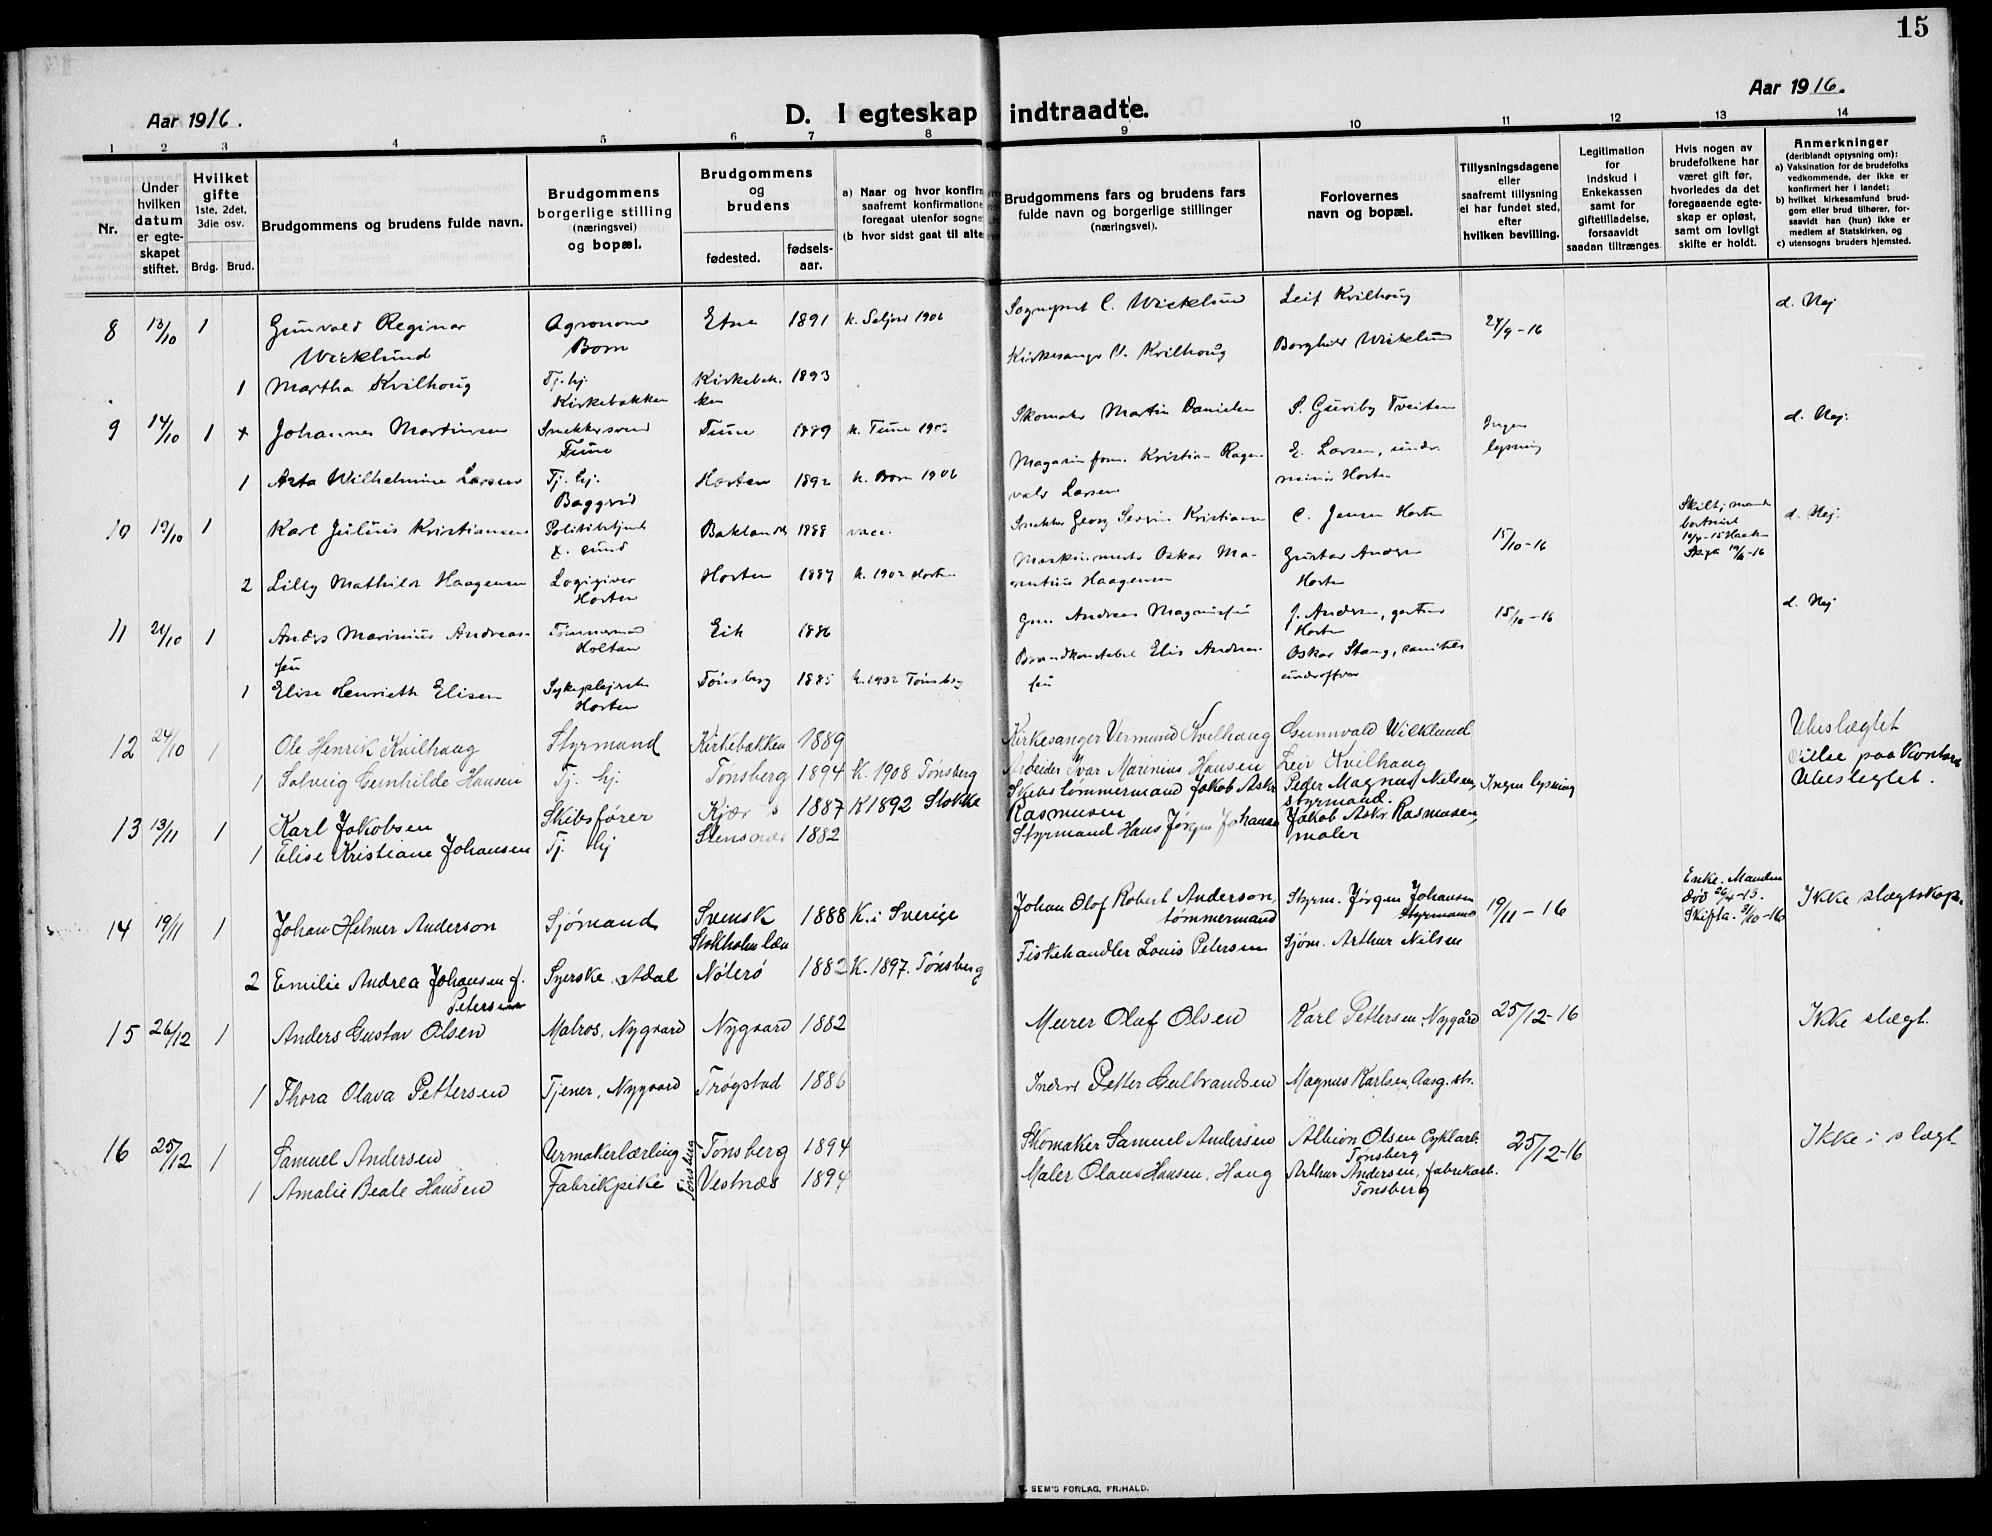 15
Aar 1916.
Aar 1916.
D. I egteskap indtraadte.
1 2 3 4 5 6 7 8 9 10 11 12 13 14
Nr.
Under hvilken datum er egteskapet stiftet.
Hvilket gifte 1ste, 2det, 3die osv.
Brdg. Brud.
Brudgommens og brudens fulde navn.
Brudgommens borgerlige stilling (næringsvei) og bopæl.
Brudgommens og brudens
fødested.
fødselsaar.
a) Naar og hvor konfirm
saafremt konfirmatione
foregaat utenfor sogne
(b hvor sidst gaat til alte
Brudgommens fars og brudens fars fulde navn og borgerlige stillinger (næringsvei).
Forlovernes navn og bopæl.
Tillysningsdagene eller saafremt tillysning ei har fundet sted, efter hvilken bevilling.
Legitimation for indskud i Enkekassen samt for giftetilladelse, forsaavidt saadan tiltrænges.
Hvis nogen av brudefolkene har været gift før, hvorledes da det foregaaende egteskap er opløst, samt om lovligt skifte er holdt.
Anmerkninger
(deriblandt opjysning om):
a) Vaksination for de brudefolks vedkommende, der ikke er konfirmert her i landet;
b) hvilket kirkesamfund brudgom eller brud tilhører, forsaavidt han (hun) ikke er medlem af Statskirken, og
c) utensogns bruders hjemsted.
8 13/10 1 Gunvald Reginar Agronom Etne 1891 k. Seljord 1906 C. Wicklund Leif Kvilhoug 24/9-16 d. Nej
Wicklund Born Kirkesanger V. Kvilhoug Borghild Wicklund
1 Martha Kvilhoug Tj. hj. Kirkebak. 1893
Kirkebakken ken
9 14/10 1 + Johannes Martinsen Snekkersvend Tune 1889 k. Tune 1903 Skomaker Martin Danielsen S. Guriby Tveiten Ingen d. Nej.
Tune Magasinform. Kristian Ragn- E. Larsen, under- lysning
1 Asta Wilhelmine Larsen Tj. hj. Horten 1892 k. Born 1906 vald Larsen Horten
10 19/10 1 Karl Julius Kristiansen Politibetjent 1888 vacc. Snekker Georg Kristiansen C. Jensen Horten 15/10-16 Skilt, d. Nej.
Maskinmester Oskar Ma- Gustav Andersen
2 Lilly Mathilde Haagensen Logigiver Horten 1887 k. 1902 Horten Haagensen Horten
Horten
11 21/10 1 Anders Marinius Andreas- Tømmermand Eik 1886 Gm. Andreas J. Andersen, gartner 15/10-16 d. Nej
sen Holtan Horten
Brandkonstabel Elis Andrea- Oskar Stang, sanitets
1 Elise Henriette Elisen Sykepleierske Tønsberg 1885 k. 1902 Tønsberg sen underofficer
Horten
12 24/10 1 Ole Henrik Kvilhaug Styrmand Kirkebakken 1889 Kirkesanger Vermund Kvilhaug Gunnvald Wicklund Ubeslægtet
1 Solveig Gunhilde Hansen Tj. hj Tønsberg 1894 K. 1908 Tønsberg Arbeider Ivar Marinius Hansen Leiv Kvilhaug Vielse paa Kontoret
13 13/11 1 Karl Jakobsen Skibsfører Kjær 1887 K 1892 Stokke Skibstømmermand Jakob Askr. Peder Magnus Nilsen, Ingen lysning Ubeslegtet.
Rasmusen styrmand.
1 Elise Kristiane Johansen Tj. hj 1882 Styrmand Hans Jørgen Johansen Jakob Askr. Rasmusen,
maler
14 19/11 1 Johan Helmer Anderson Sjømand Svensk 1888 K. i Sverige Johan Olof Robert Anderson, Styrm. Jørgen Johansen 19/11-16 Enke. Manden Ikke slægtskap.
Stokholm læn tømmermand Styrmand død 26/4-13.
Skifte. 31/10-16
Fiskehandler Louis Petersen Sjøm. Arthur Nilsen
2 Emilie Andrea Johansen f. Syerske. Adal Nøterø 1882 K. 1897. Tønsberg
Petersen
15 26/12 1 Anders Gustav Olsen Matros, Nygaard Nygaard 1882 Murer Olaf Olsen Karl Pettersen, Nygård 25/12-16 Ikke slægt.
1 Thora Olava Pettersen Tjener, Nygaard Trøgstad 1886 Petter Gulbrandsen Magnus Karlsen, Aasg. str.
16 25/12 1 Samuel Andersen Urmakerlærling Tønsberg 1894 Skomaker Samuel Andersen Albion Olsen Cyklarb. 25/12-16 Ikke i slægt
Tønsberg
1 Amalie Beate Hansen Fabrikpike Tønsberg Vestnæs 1894 Maler Olaus Hansen, Haug Arthur Andersen, fabrikarb.
Tønsberg
SEM'S FORLAG, FR.HALD.